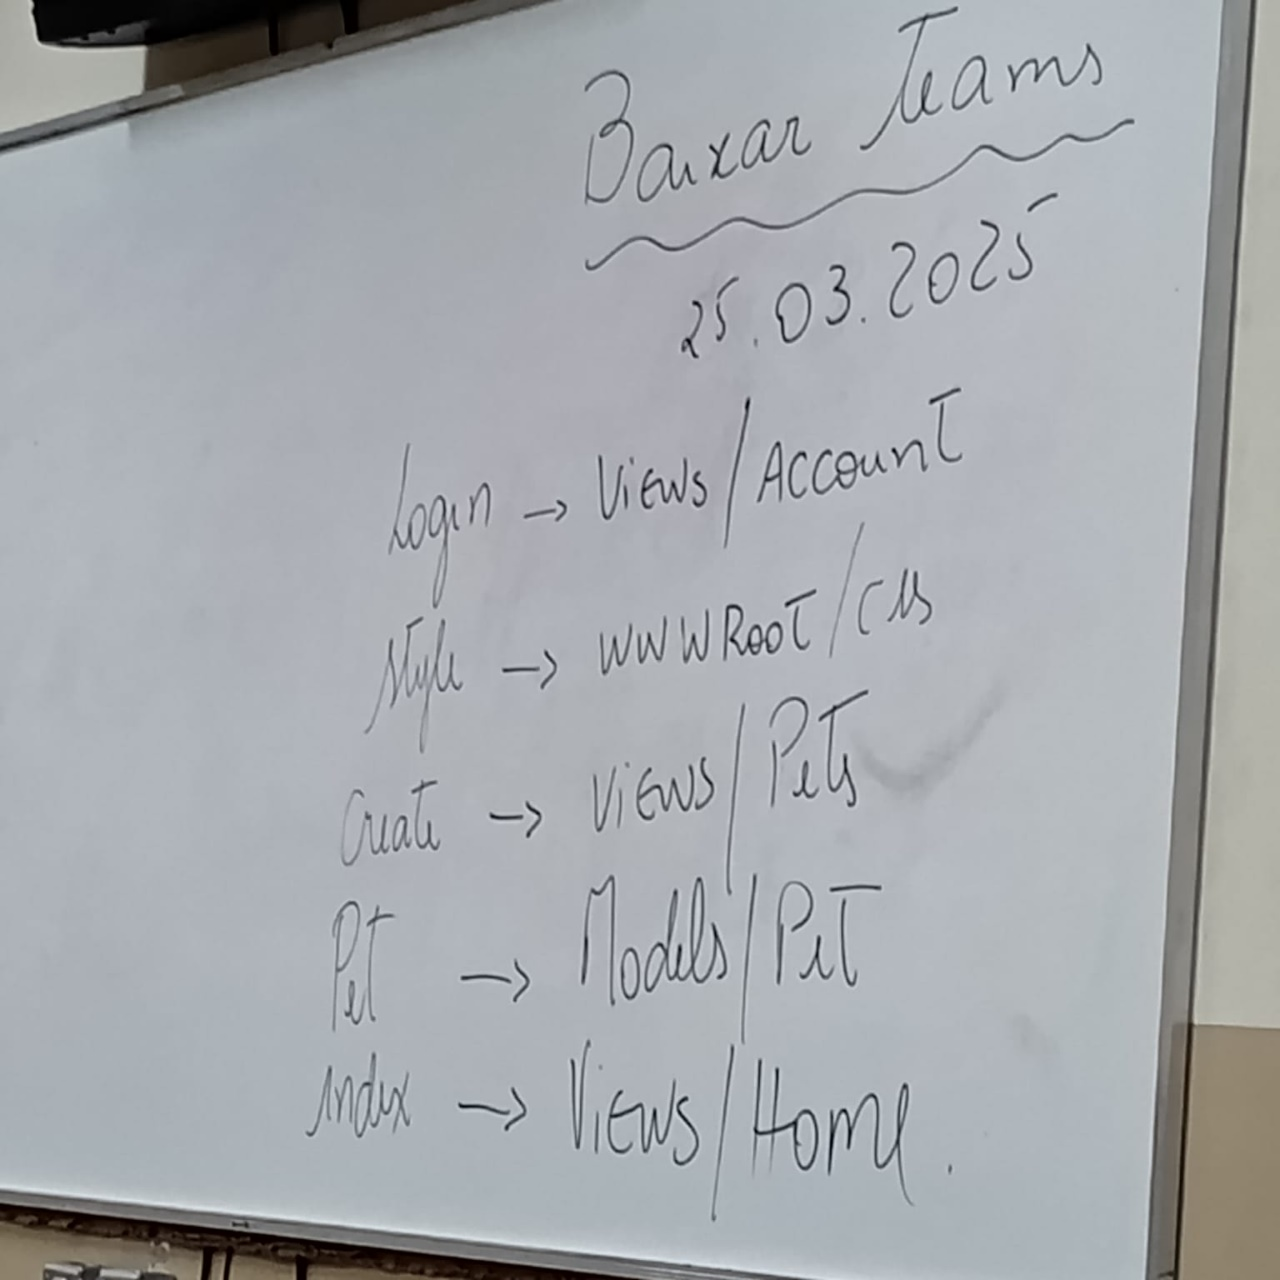 Baixar Teams
25.03.2025
Login → Views/Account
Style → wwwRoot/css
Create → Views/Pets
Pet → Models/Pet
Index → Views/Home.